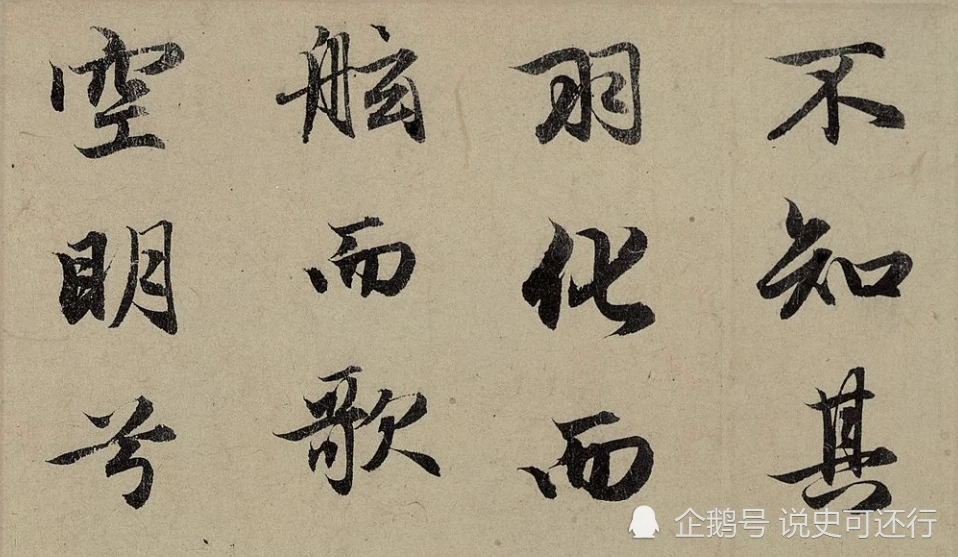 不知其
羽化而
舷而歌
空明兮
企鹅号 说史可还行